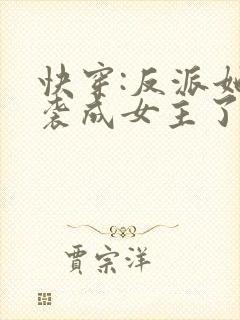 快穿:反派她
袭成女主了
賈宗洋